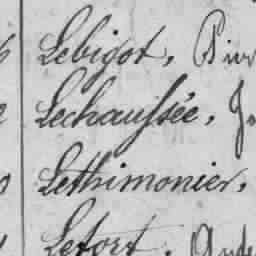 Lebigot,
Lechaussée,
Lethimonier,
Lefort,